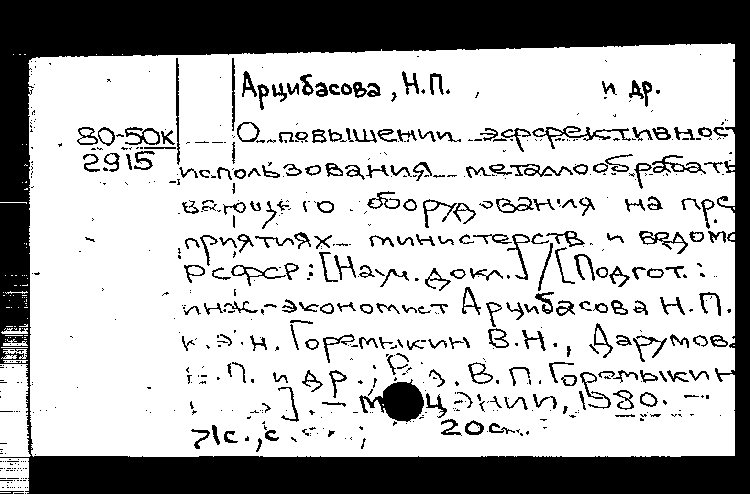 Арцибасова, Н.П. и др.
80-50к О повышении эффективност
2915 использования металлообрабаты
вающего оборудования на пред
приятиях министерств и ведомс
РСФСР: [Науч. докл.] / [Подгот.:
инж.-экономист Арцибасова Н.П.
к.э.н. Горемыкин В.Н., Дарумова
Н.П. и др.; В.П. Горемыкин
]. - М ЦЭНИИ, 1980. -
71с., с. ; 20см.